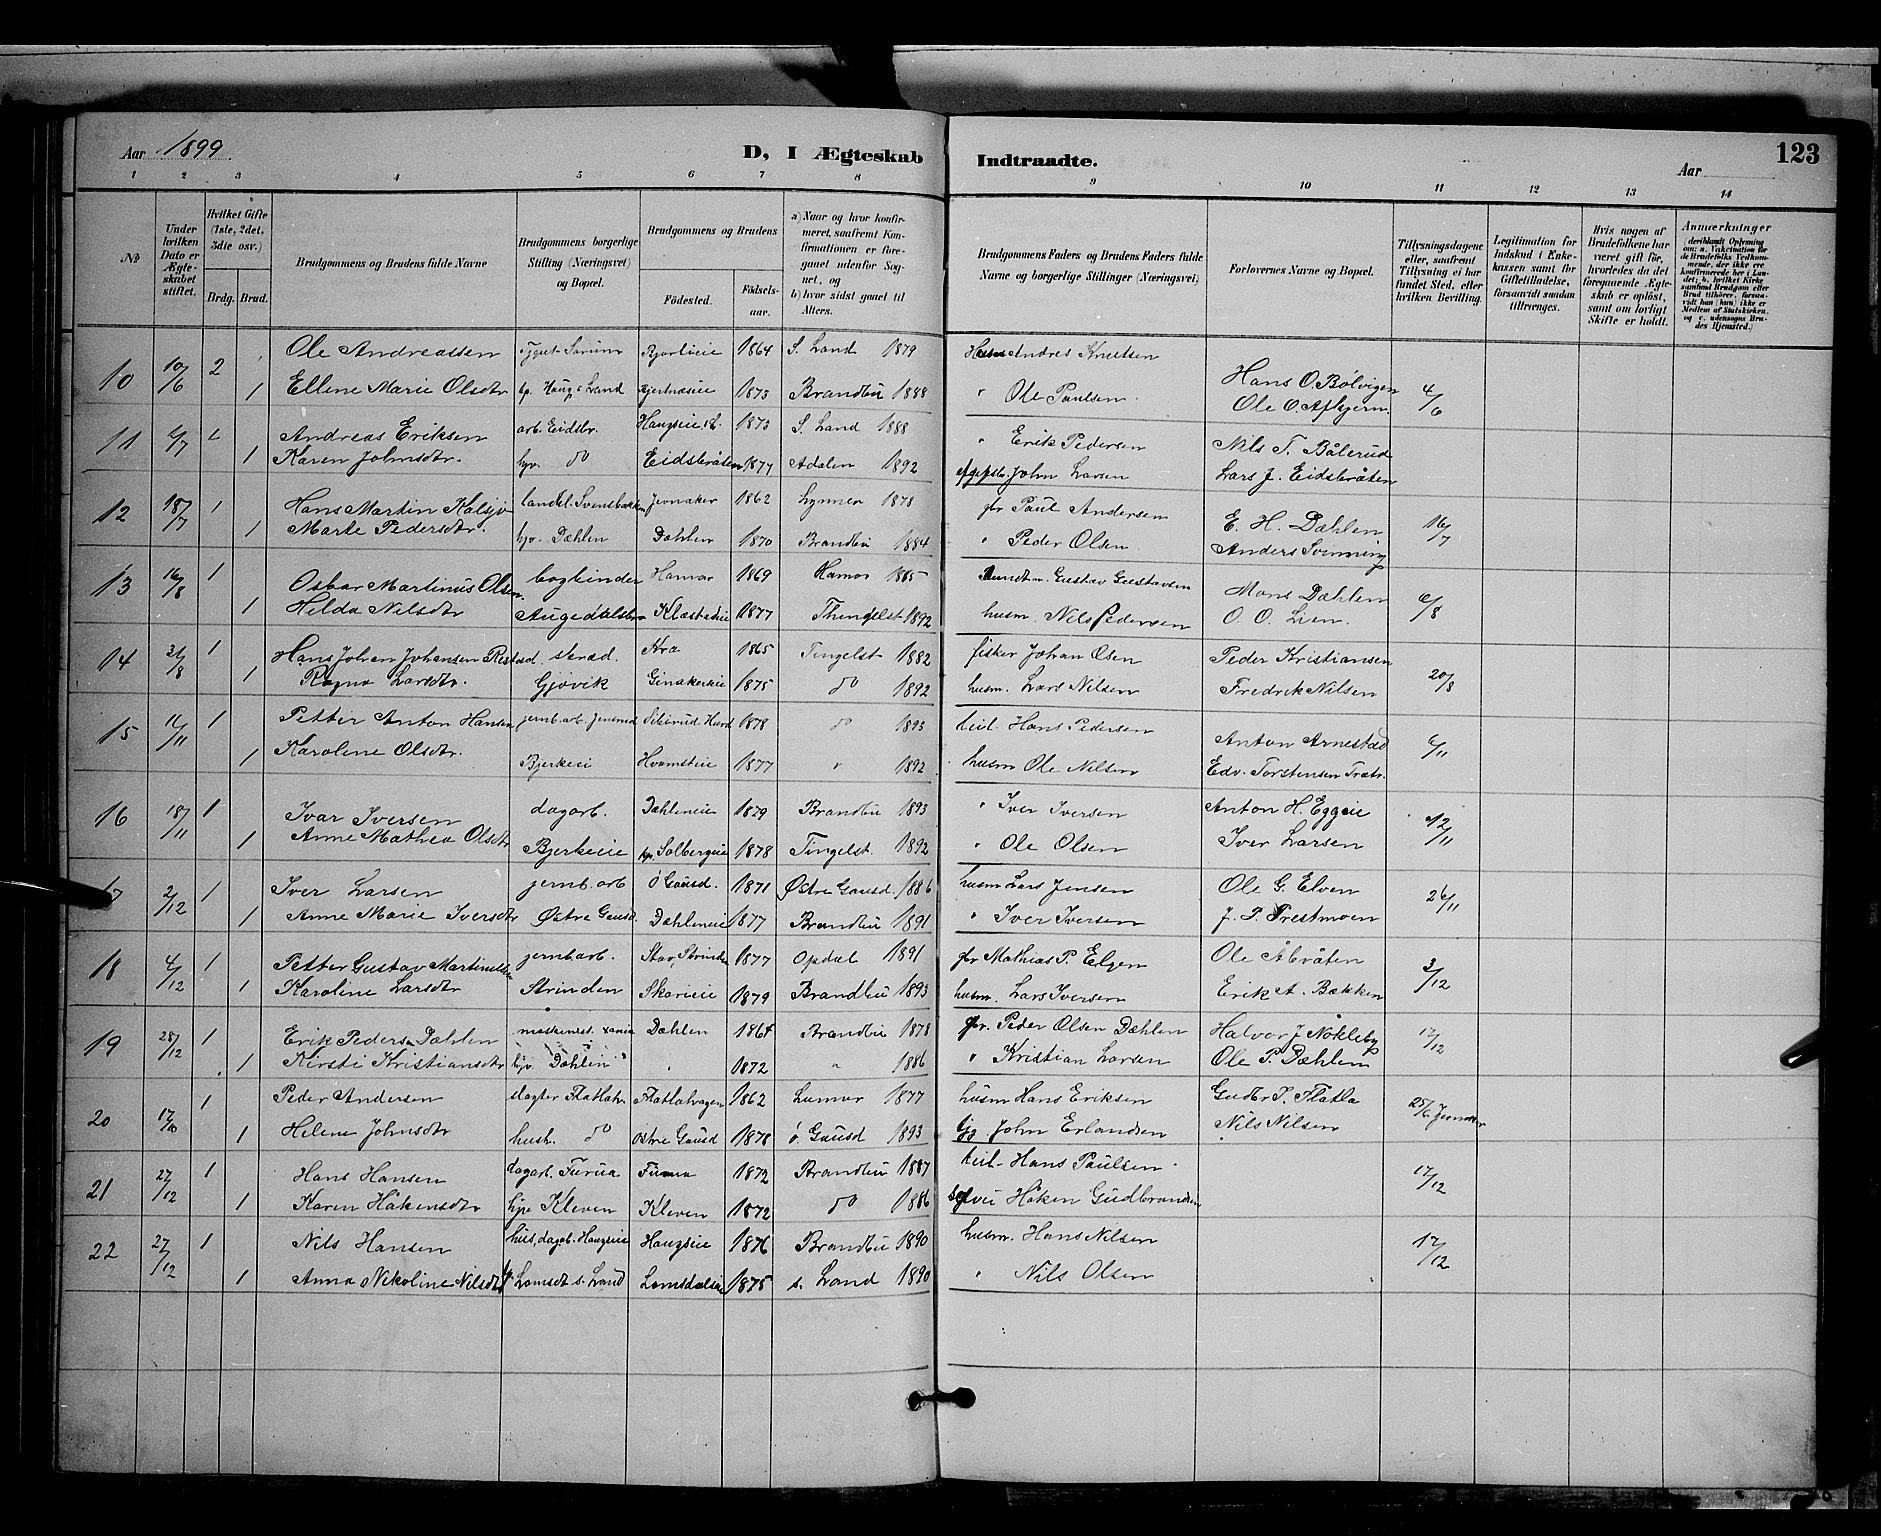 Aar 1899
D, I Ægteskab Indtraadte.
Aar
123
1 2 3 4 5 6 7 8 9 10 11 12 13 14
No
Under hvilken Dato er Ægteskabet stiftet.
Hvilket Gifte (1ste, 2det, 3die osv.)
Brdg. Brud.
Brudgommens og Brudens fulde Navne
Brudgommens borgerlige Stilling (Næringsvei) og Bopæl.
Brudgommens og Brudens
Fødested.
Fødselsaar.
a) Naar og hvor konfirmeret, saafremt Konfirmationen er foregaaet udenfor Sognet, og
b) hvor sidst gaaet til Alters.
Brudgommens Faders og Brudens Faders fulde Navne og borgerlige Stillinger (Næringsvei)
Forlovernes Navne og Bopæl.
Tillysningsdagene eller, saafremt Tillysning ei har fundet Sted, efter hvilken Bevilling.
Legitimation for Indskud i Enkekassen samt for Giftetilladelse, forsaavidt saadan tiltrænges.
Hvis nogen af Brudefolkene har været gift før, hvorledes da det foregaaende Ægteskab er opløst, samt om lovligt Skifte er holdt.
Anmærkninger
(deriblandt Oplysning om: a. Vakcination for de Brudefolks Vedkommende, der ikke ere konfirmerede her i Landet; b. hvilket Kirkesamfund Brudgom eller Brud tilhører, forsaavidt han (hun) ikke er Medlem af Statskirken, og c. udensogns Brudes Hjemsted.)
10 10/6 2 Ole Andreassen 1864 S. Land 1879 Husm Andres Knutsen Hans O. Bølvigen 4/6
1 Ellene Marie Olsdtr Haug s Land 1873 Brandbu 1888 " Ole Paulsen Ole O.
11 6/7 Andreas Eriksen arb. Eidsbr. 1873 S. Land 1888 " Erik Pedersen Nils T. Bålerud
1 Karen Johnsdtr. hjv. do Eidsbråten 1877 Adalen 1892 John Larsen Lars J. Eidsbråten
12 18/7 1 Hans Martin Kalsjø landh. Svensbakken Jevnaker 1862 Lynner 1878 gbr Paul Andersen E. H. Dæhlen 16/7
1 Marte Pedersdtr. hjv. Dæhlen Dæhlen 1870 Brandbu 1884 " Peder Olsen Anders Svenning
13 16/8 1 Oskar Martinus Olsen bogbinder Hamar 1869 Hamar 1885 Gustav Gustavsen Mons Dæhlen 6/8
1 Hilda Nilsdtr Augedalsbro Klæstadeie 1877 Thingelst 1892 husm. Nils Pedersen O. O. Lien.
14 31/8 1 Hans Johan Johansen Restad. skræd. Kra 1865 Tingelst 1882 fisker Johan Olsen Peder Kristiansen 20/8
1 Ragna Larsdtr. Gjøvik Ginakereie 1875 do 1892 husm. Lars Nilsen Fredrik Nilsen
15 11/11 1 Petter Anton Hansen jernb. arb. 1878 do 1893 Hans Pedersen Anton Arnestad 6/11
1 Karoline Olsdtr. Bjerkeei Hvamseie 1877 " 1892 husm Ole Nilsen Edv. Torstensen
16 18/11 1 Ivar Iversen dagarb. Dæhleneie 1829 Brandbu 1893 " Iver Iversen Anton H. Eggeie 12/11
1 Anne Mathea Olsdtr Bjerkeie Solbergeie 1878 Tingelst. 1892 " Ole Olsen Iver Larsen
17 2/12 1 Iver Larsen jernb. arb Ø Gausd. 1871 Østre Gausd. 1886 husm Lars Jensen Ole G. Elven 26/11
1 Anne Marie Iversdtr Østre Gausd. Dæhleneie 1877 Brandbu 1891 " Iver Iversen J. P. Trestmoen
18 4/12 1 Petter Gustav Martinussen jernb arb. Stav, Strinden 1877 Opdal 1891 gbr Mathias P. Elgen Ole Åbråten 3/12
1 Karoline Larsdtr Strinden Skarieie 1879 Brandbu 1893 husm. Lars Iversen Erik A. Bækken
19 28/12 1 Erik Peders. Dæhlen maskinist. Xania Dæhlen 1864 Brandbu 1878 gbr. Peder Olsen Dæhlen Halvor J Nøkleby 17/12
1 Kirsti Kristiansdtr hjv. Dæhlen " 1872 " 1886 " Kristian Larsen Ole P. Dæhlen
20 17/10 1 Peder Andersen Flatlahagen 1862 Lunner 1877 husm Hans Eriksen Gudbr I. Flatla 25/6 Jevnaker
1 Helene Johnsdtr hush. do Østre Gausd 1878 ø. Gausd 1893 John Erlandsen Nils Nilsen
21 27/12 1 Hans Hansen dagarb. Furua Furua 1872 Brandbu 1887 Hans Paulsen 17/12
1 Karen Håkensdtr Kleven Kleven 1872 do 1886 selvei Håken Gudbrandsen
22 27/12 1 Nils Hansen hus, dagb. Haugseie Haugseie 1876 Brandbu 1890 husm. Hans Nilsen 17/12
1 Anna Nikoline Nilsdtr Lomsdt s. Land Lomsdalseie 1875 s. Land 1890 " Nils Olsen